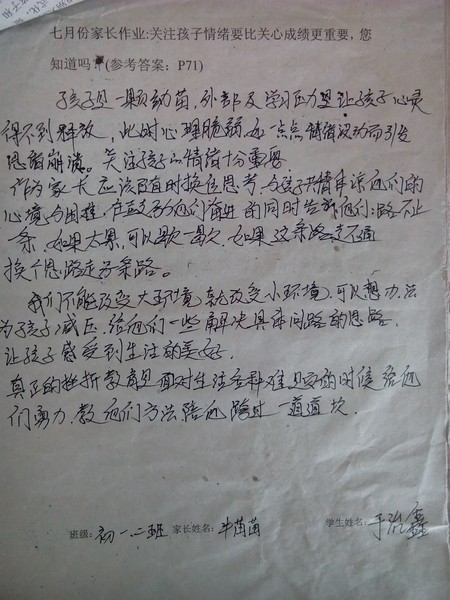 七月份家长作业:关注孩子情绪要比关心成绩更重要，您
知道吗？(参考答案：P71)
孩子是一颗幼苗，外部及学习压力里让孩子心灵
得不到释放，此时心理脆弱，如一点点情绪波动而引发
思绪崩溃。关注孩子的情绪十分重要
作为家长应该适时换位思考，与孩子共情体谅他们的
心境与困难，在鼓励他们前进的同时告诉他们：路不止
一条，如果太累，可以歇一歇，如果这条路走不通
换个思路走另条路。
我们不能改变大环境，就改变小环境，可以想办法
为孩子减压，给他们一些解决具体问题的思路，
让孩子感受到生活的美好。
真正的挫折教育是面对生活各种难题的时候给他
们勇力，教他们方法陪他跨过一道道坎.
班级：初一.二班 家长姓名：牛茵茵 学生姓名：于泓鑫